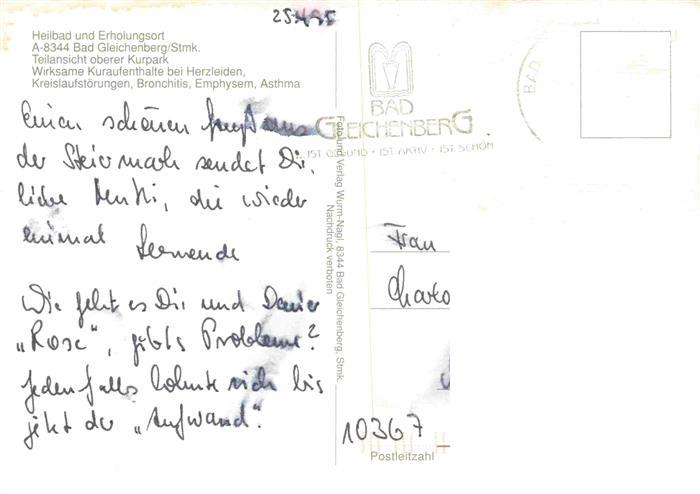 25.4.95
Heilbad und Erholungsort
A-8344 Bad Gleichenberg/Stmk.
Teilansicht oberer Kurpark
Wirksame Kuraufenthalte bei Herzleiden,
Kreislaufstörungen, Bronchitis, Emphysem, Asthma
einen schönen Gruß aus
der Steiermark sendet Dir,
liebe Mutti, die wieder
einmal Lernende
Wie geht es Dir und Deiner
„Rose“, gibts Probleme?
Jedenfalls lohnte sich bis
jetzt der „Aufwand“.
Foto und Verlag Wurm-Nagl, 8344 Bad Gleichenberg, Stmk.
Nachdruck verboten
BAD
GLEICHENBERG
... IST GESUND · IST AKTIV · IST SCHÖN
BAD
Frau
Charlo
10367
Postleitzahl